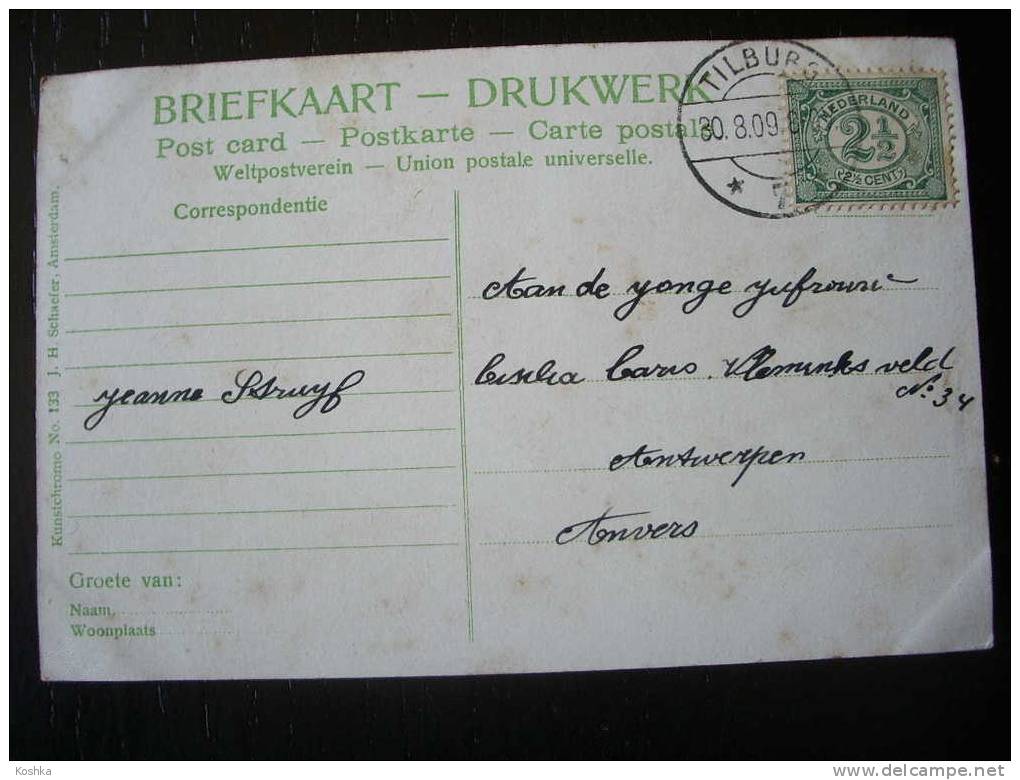 BRIEFKAART — DRUKWERK
Post card — Postkarte — Carte postale
Weltpostverein — Union postale universelle.
TILBURG
30.8.09.
NEDERLAND
2½
2½ CENT
Correspondentie
Kunstchromo No. 133 J. H. Schaefer, Amsterdam.
Jeanne Struyf
Aan de yonge yufrouw
Caro. Kleminks veld
No: 34
Antwerpen
Anvers
Groete van:
Naam
Woonplaats
Koshka
delcampe.net